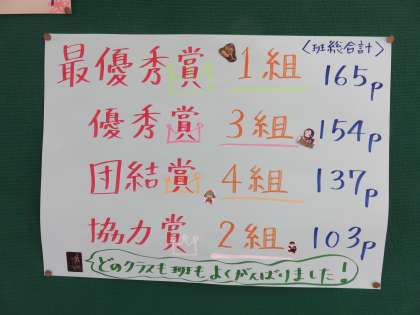 〈班総合計〉
最優秀賞 1組 165p
優秀賞 3組 154p
団結賞 4組 137p
協力賞 2組 103p
どのクラスも班もよくがんばりました!